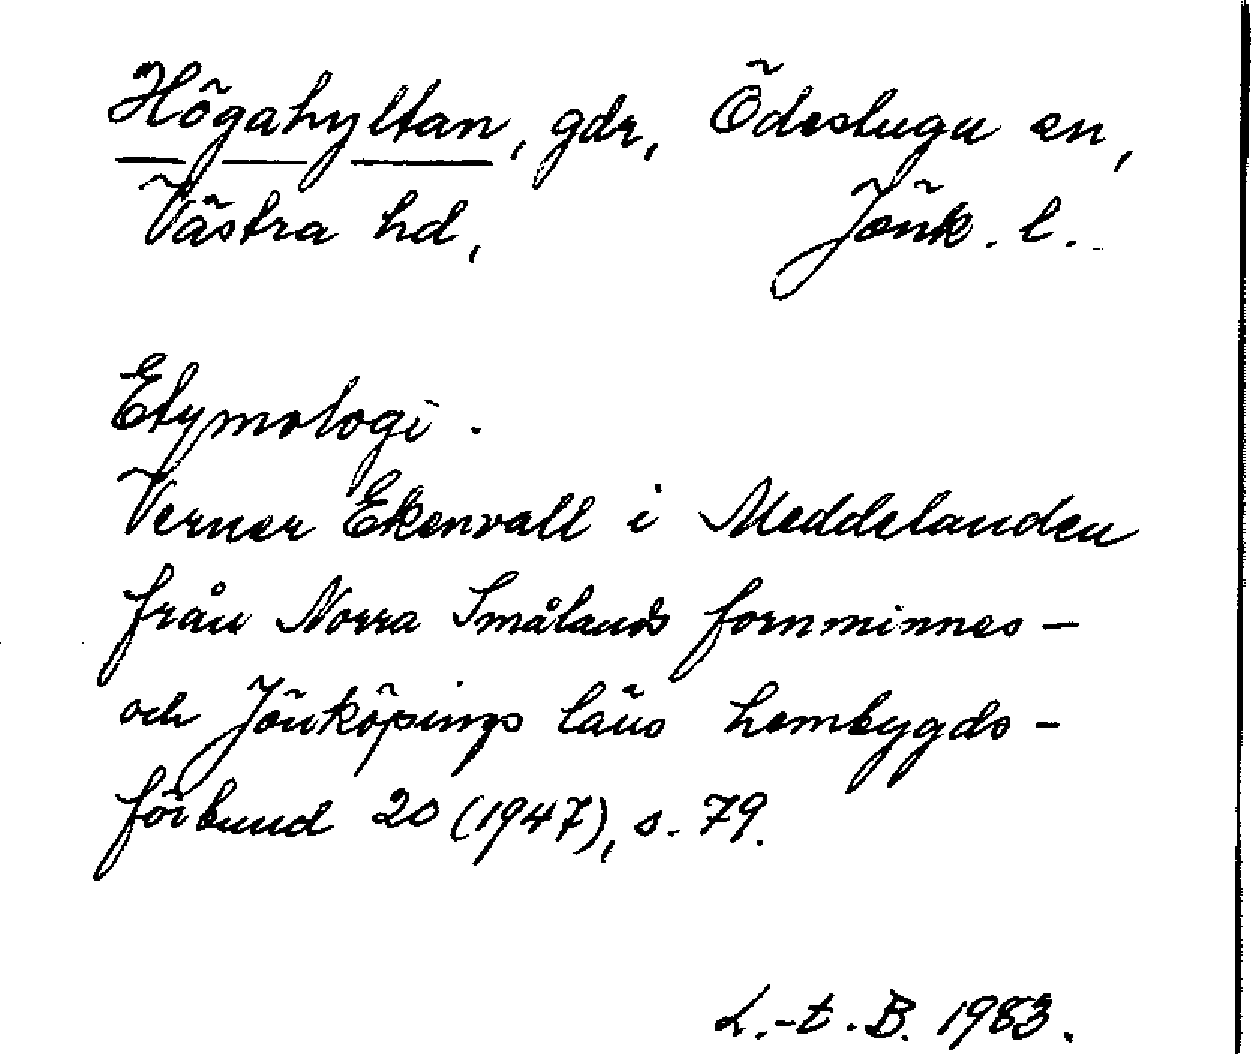 Högahyltan, gdr, Ödeslugu sn,
Västra hd, Jönk. l.
Etymologi.
Verner Ekenvall i Meddelanden
från Norra Smålands fornminnes-
och Jönköpings läns hembygds-
förbund 20 (1947), s. 79.
L.-t. B. 1983.